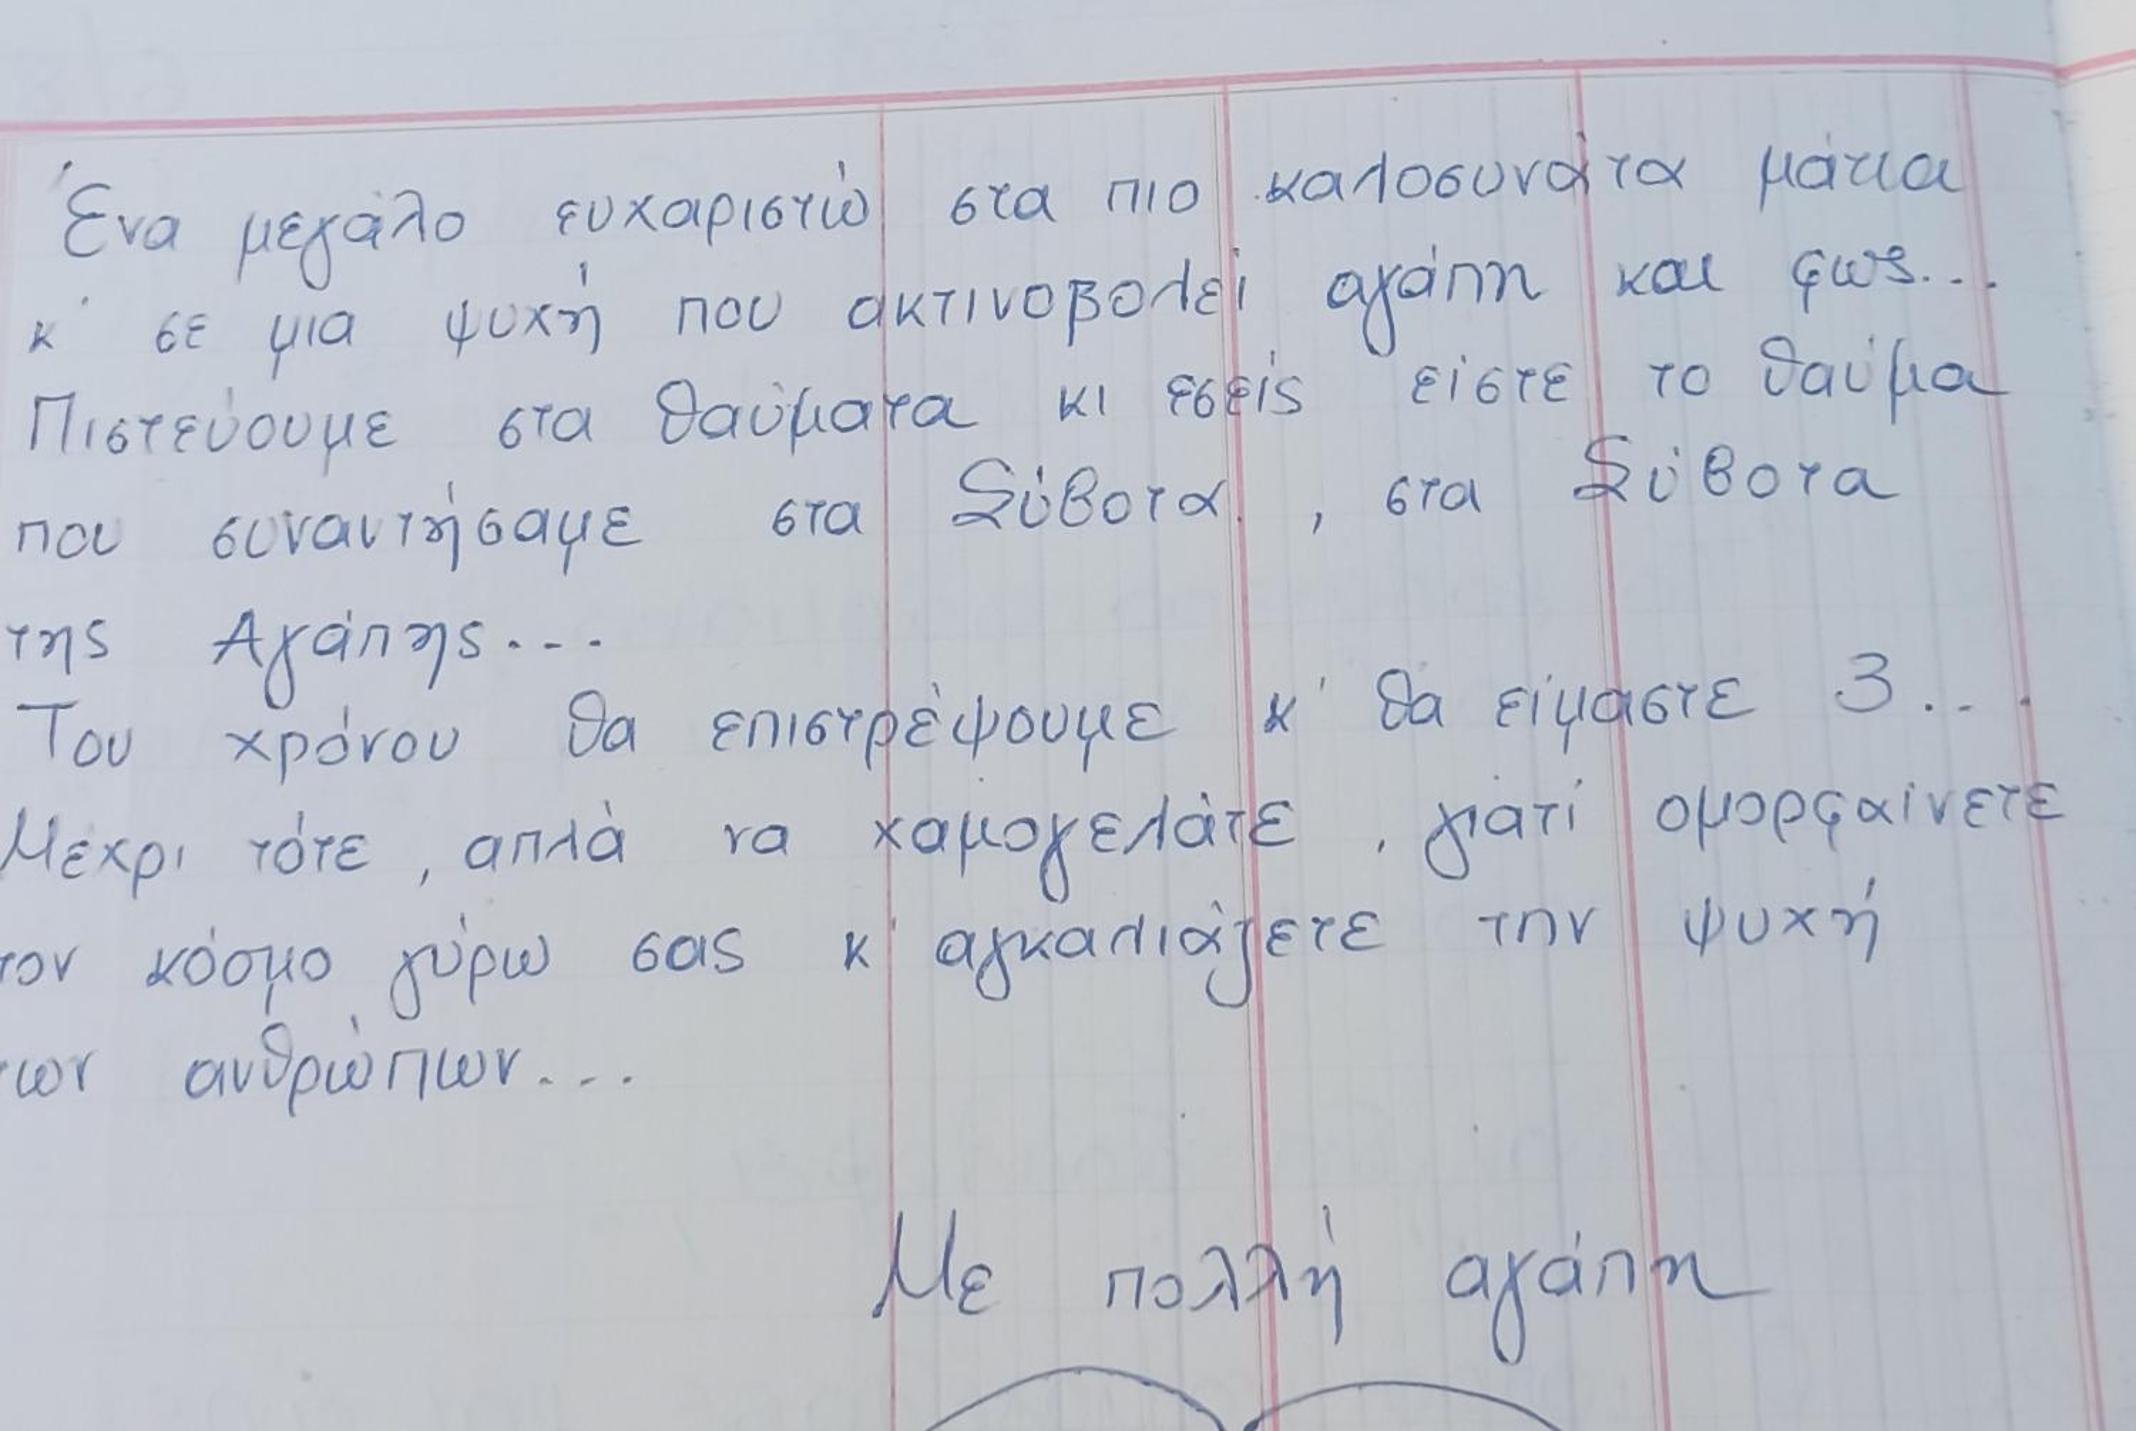 Ένα μεγάλο ευχαριστώ στα πιο καλοσυνάτα μάτια
κ' σε μια ψυχή που ακτινοβολεί αγάπη και φως...
Πιστεύουμε στα θαύματα κι εσείς είστε το θαύμα
που συναντήσαμε στα Σύβοτα, στα Σύβοτα
της Αγάπης...
Του χρόνου θα επιστρέψουμε κ' θα είμαστε 3...
Μέχρι τότε, απλά να χαμογελάτε, γιατί ομορφαίνετε
τον κόσμο γύρω σας κ' αγκαλιάζετε την ψυχή
των ανθρώπων...
Με πολλή αγάπη